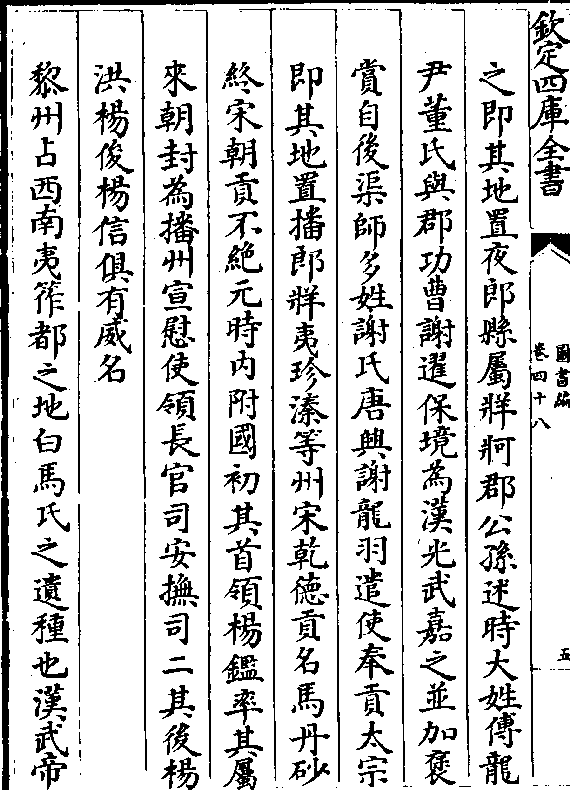 欽定四庫全書
圖書編
卷四十八
五
之即其地置夜郎縣屬牂牁郡公孫述時大姓傅龍
尹董氏與郡功曹謝暹保境為漢光武嘉之並加褒
賞自後渠師多姓謝氏唐興謝龍羽遣使奉貢太宗
即其地置播郎牂夷珍溱等州宋乾德貢名馬丹砂
終宋朝貢不絶元時内附國初其首領楊鑑率其屬
來朝封為播州宣慰使領長官司安撫司二其後楊
洪楊俊楊信俱有威名
黎州占西南夷筰都之地白馬氏之遺種也漢武帝